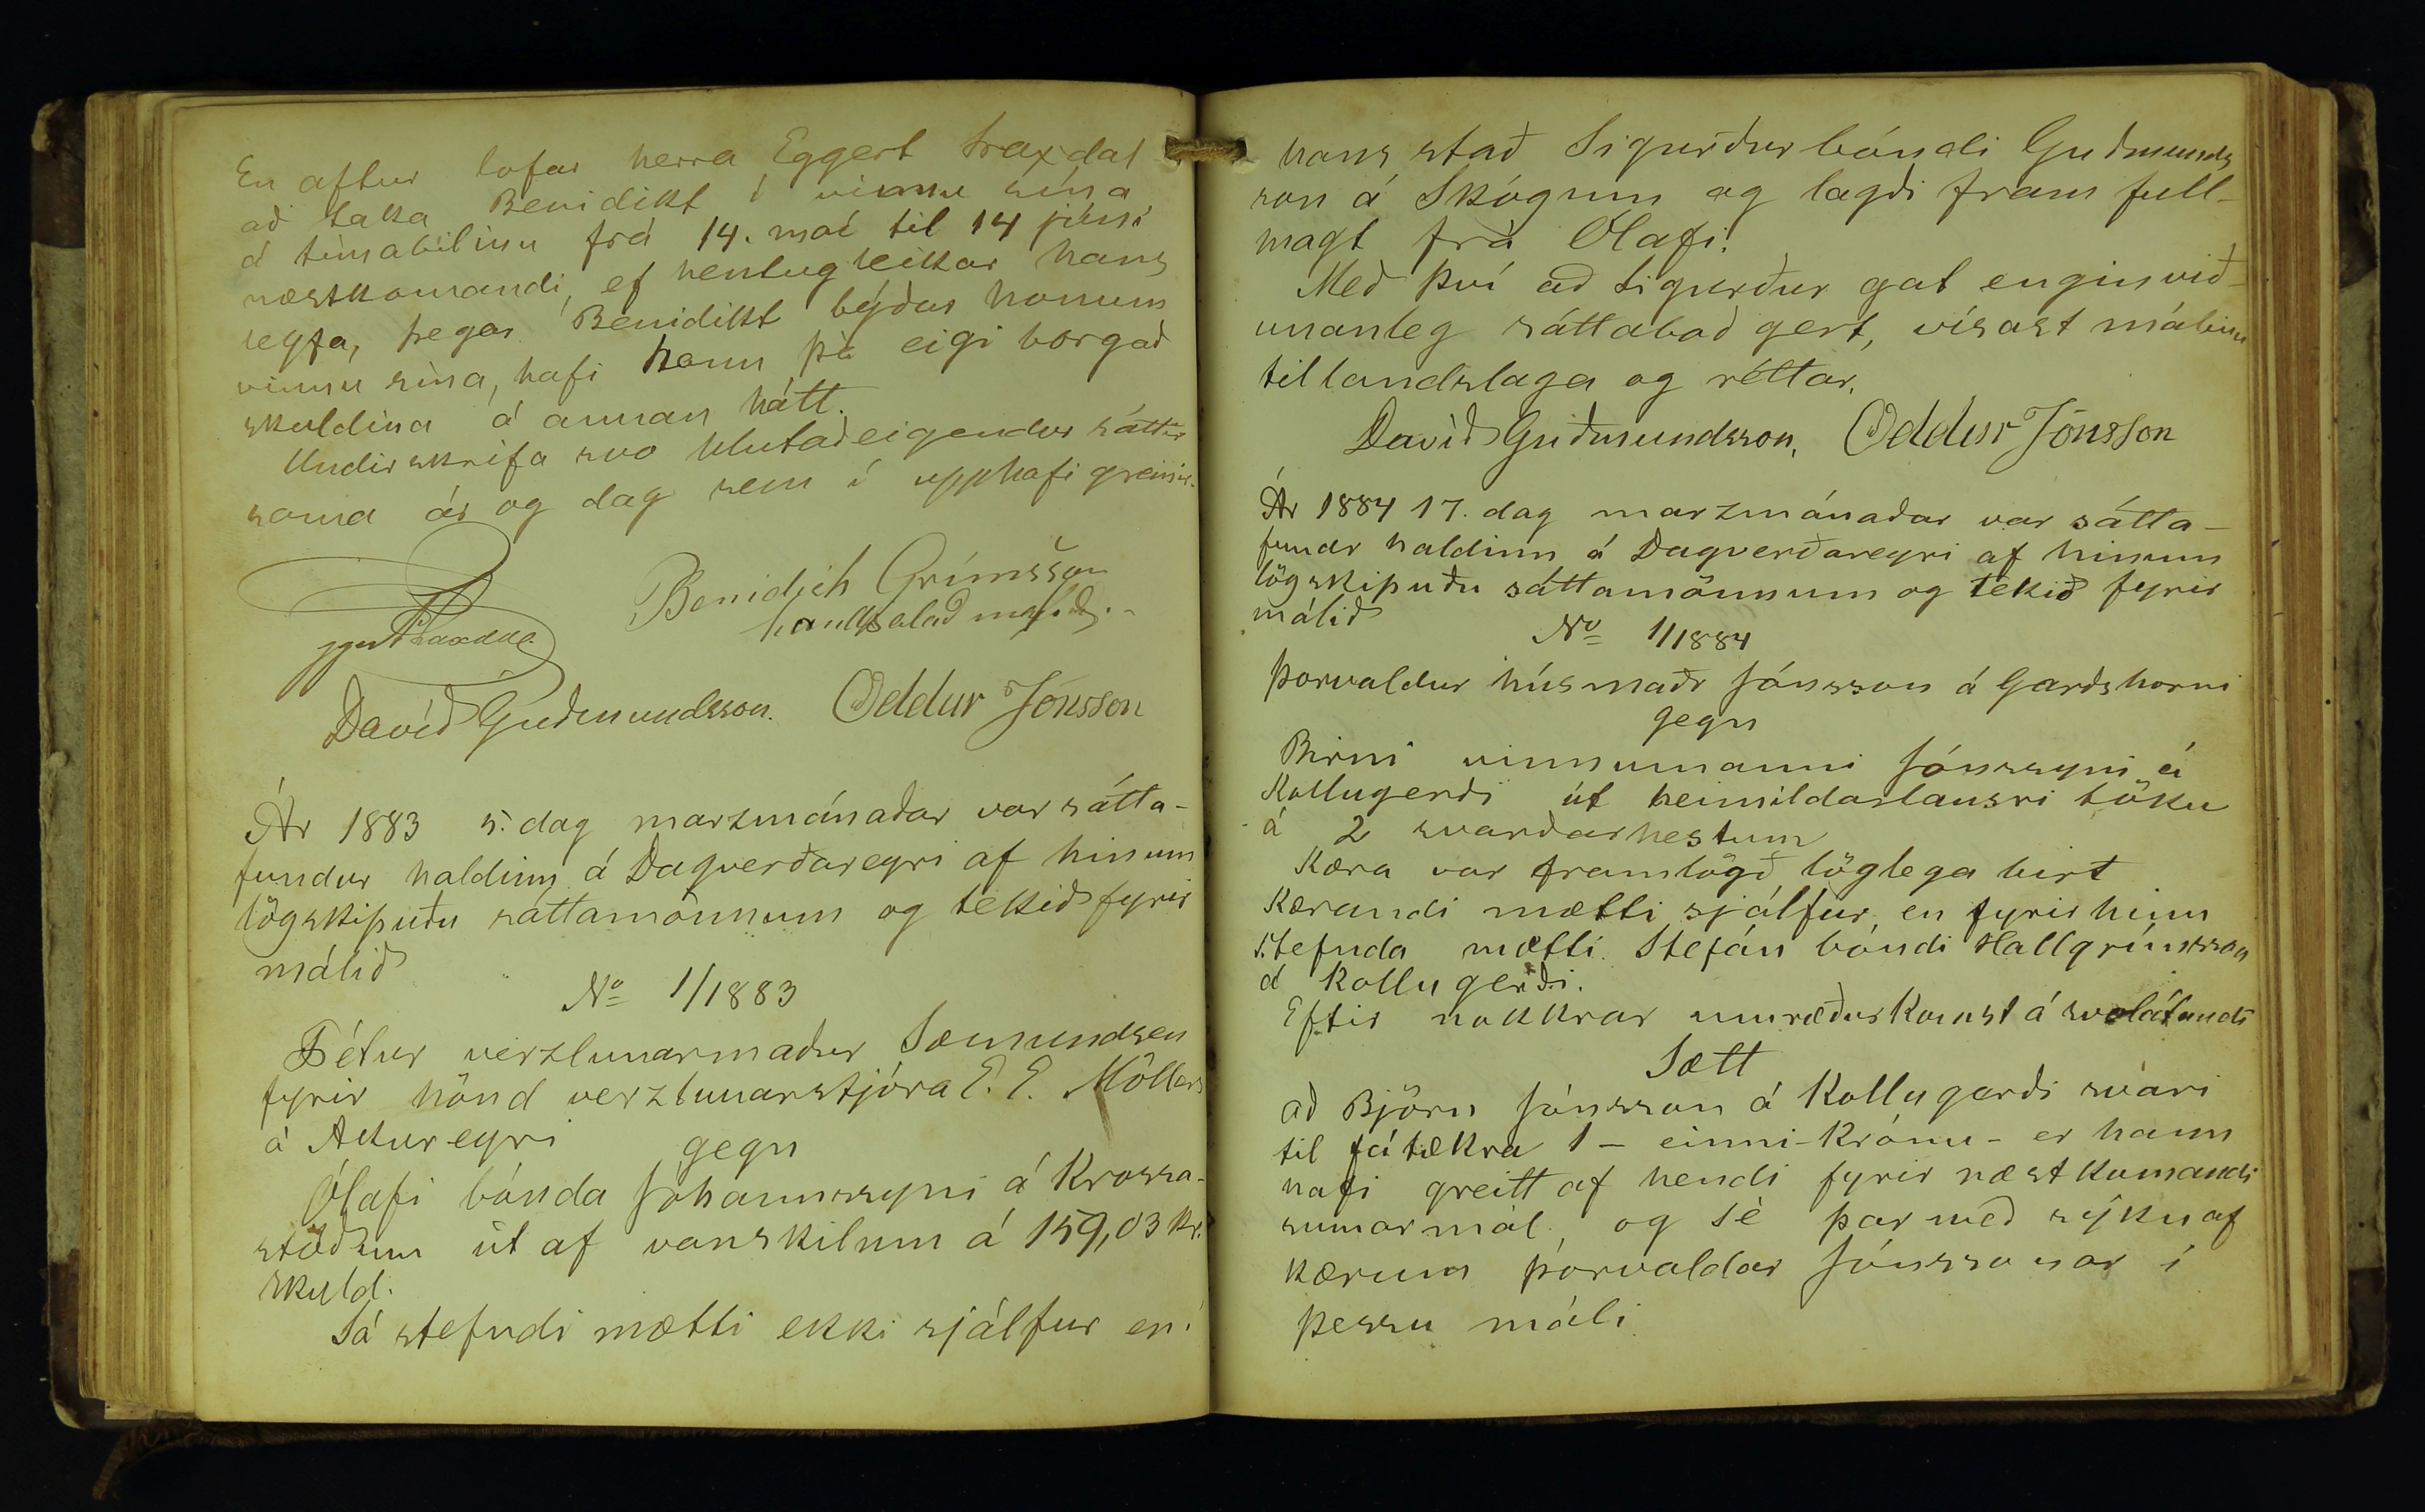 En aftur lofar herra Eggert Laxdal
að taka Benidikt í vinnu sína
á tímabilinu frá 14. maí til 14 júní
næstkomandi, ef hentugleikar hans
leyfa, þegar Benidikt býður honum
vinnu sína, hafi hann þá eigi borgað
skuldina á annan hátt.
Undirskrifa svo hlutaðeigendur sáttir
sama ár og dag sem í upphafi greinir.
Eggert Laxdal
Benidich Grímsson
handsalað
Davíð Guðmundsson. Oddur Jónsson
Ár 1883 5. dag marzmánaðar var sátta-
fundur haldinn á Dagverðareyri af hinum
lögskipuðu sáttamönnum og tekið fyrir
málið
No 1/1883
Pétur verzlunarmaður Sæmundsen
fyrir hönd verzlunarstjóra E. E. Möllers
á Akureyri gegn
Ólafi bónda Jóhannssyni á Krossa-
stöðum út af vanskilum á 159,03 kr.
skuld.
Sá stefndi mætti ekki sjálfur en í
hans stað Sigurður bóndi Guðmunds
son á Skógum og lagði fram full-
magt frá Ólafi.
Með því að Sigurður gat engin við-
unanleg sáttaboð gert, vísast málinu
til landslaga og réttar.
Davíð Guðmundsson. Oddur Jónsson
Ár 1884 17. dag marzmánaðar var sátta-
fundr haldinn á Dagverðareyri af hinum
lögskipuðu sáttamönnum og tekið fyrir
málið
No 1/1884
Þorvaldur húsmaðr Jónsson á Garðshorni
gegn
Birni vinnumanni Jónssyni á
Kollugerði út heimildarlausri töku
á 2 svarðarhestum
Kæra var framlögð löglega birt
Kærandi mætti sjálfur en fyrir hinn
stefnda mætti Stefán bóndi Hallgrímsson
á Kollugerði.
Eftir nokkrar umræður komst á svolátandi
Sætt
að Björn Jónsson á Kollugerði svari
til fátækra 1 - einni - Krónu - er hann
hafi greitt af hendi fyrir næstkomandi
sumarmál, og sé þar með sýkn af
kærum Þorvaldar Jónssonar í
þessu máli